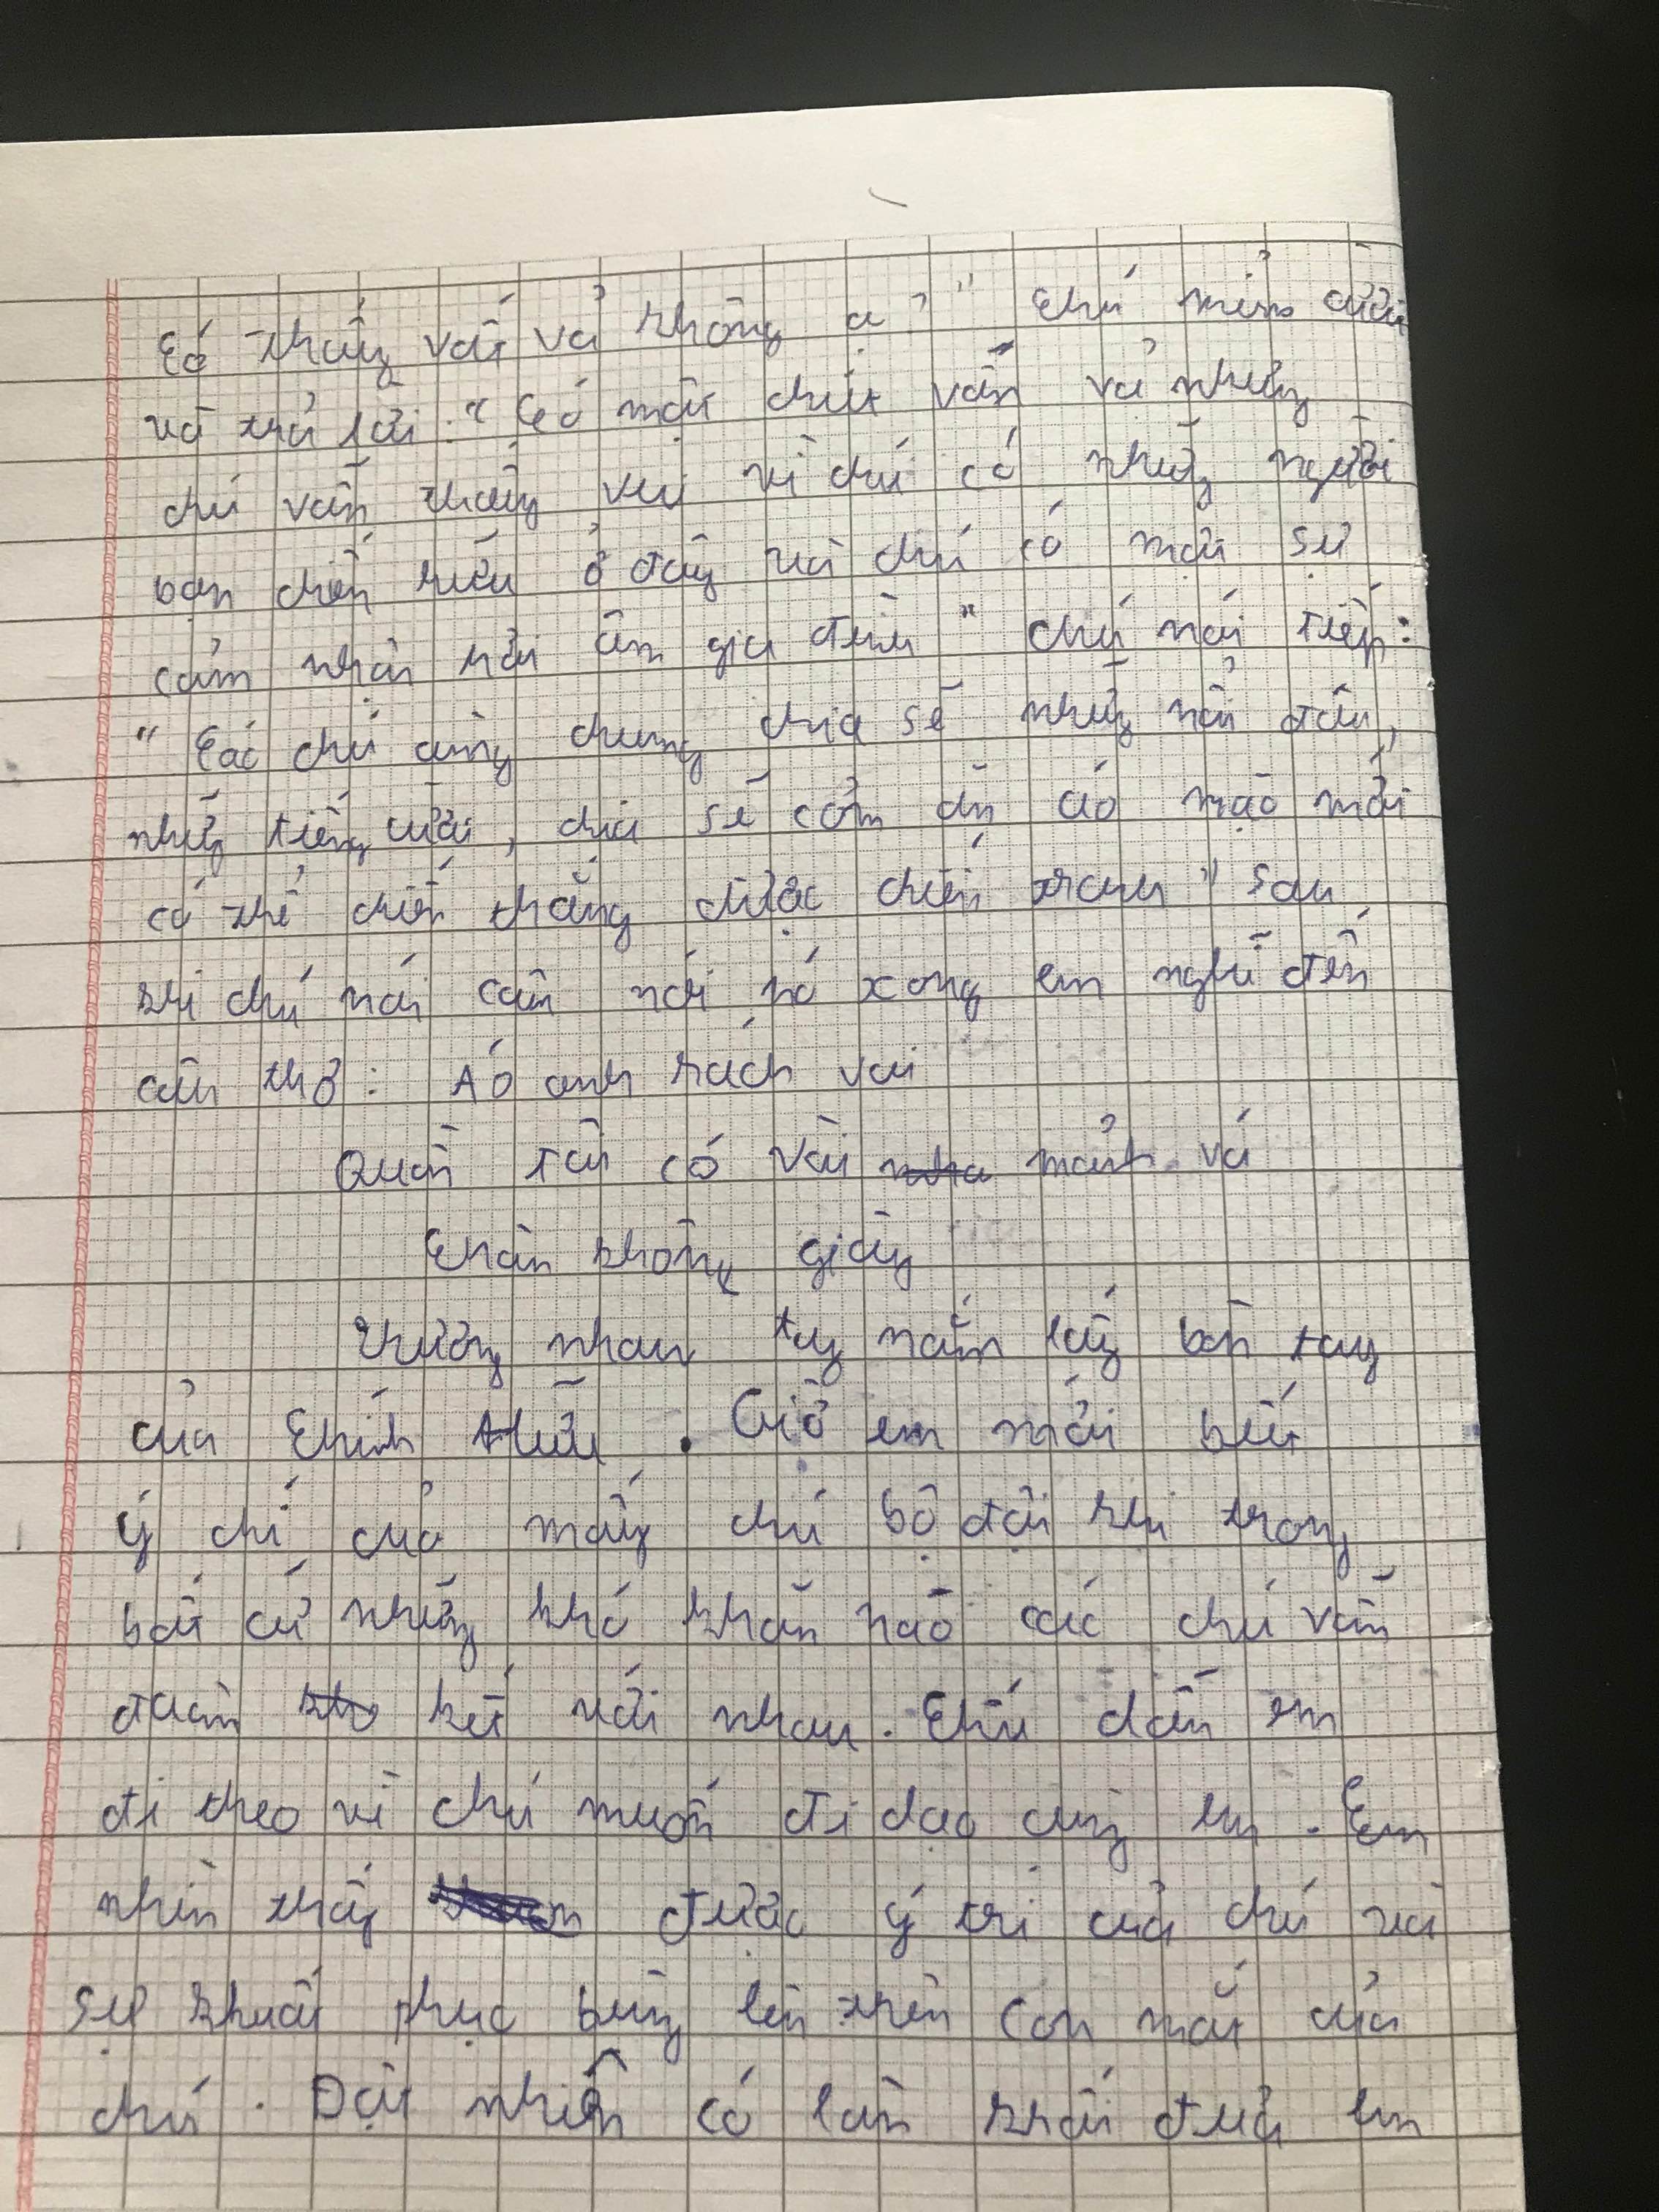 Có thấy vất vả không ạ?" Chú mỉm cười
và trả lời: "Có một chút vất vả nhưng
chú vẫn thấy vui vì chú có những người
bạn chiến hữu ở đây và chú có một sự
cảm nhận hơi ấm gia đình" chú nói tiếp:
"Các chú cùng chung chia sẽ những nỗi đau,
những tiếng cười, chia sẽ cơm ăn áo mạo mới
có thể chiến thắng được chiến tranh" sau
khi chú nói câu nói đó xong em nghĩ đến
câu thơ: Áo anh rách vai
Quần tôi có vài mảnh vá
Chân không giày
Thương nhau tay nắm lấy bàn tay
của Chính Hữu. Giờ em mới biết
ý chí của mấy chú bộ đội khi trong
bất cứ những khó khăn nào các chú vẫn
đuàn kết với nhau. Chú dẫn em
đi theo vì chú muốn đi dạo cùng em. Em
nhìn thấy được ý trí của chú và
sự khuất phục bừng lên trên con mắt của
chú. Đột nhiên có làn khói đưa em